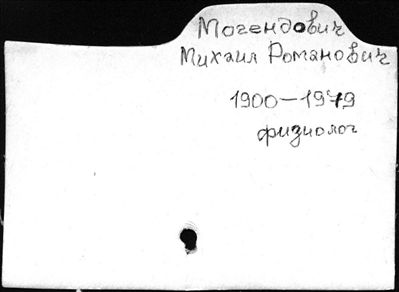 Могендович
Михаил Романович
1900-1979
физиолог